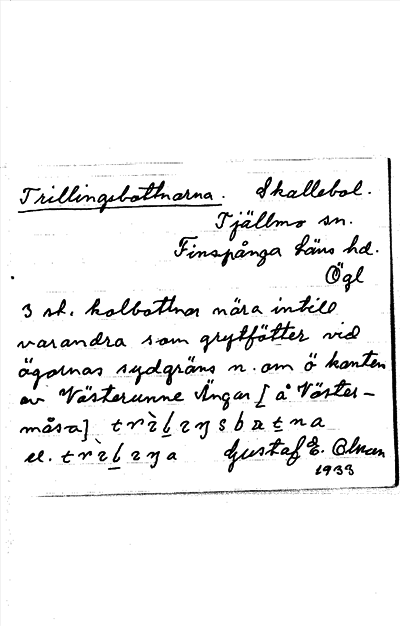 Trillingsbottnarna. Skallebol.
Tjällmo sn.
Finspånga läns hd.
Ögl
3 st. kolbottnar nära intill
varandra som grytfötter vid
ägornas sydgräns n. om ö kanten
av Västerunne Ängar [å Väster-
måsa] trìḷıŋsbɒt̠na
el. trìḷıŋa Gustaf E. Olsson
1933